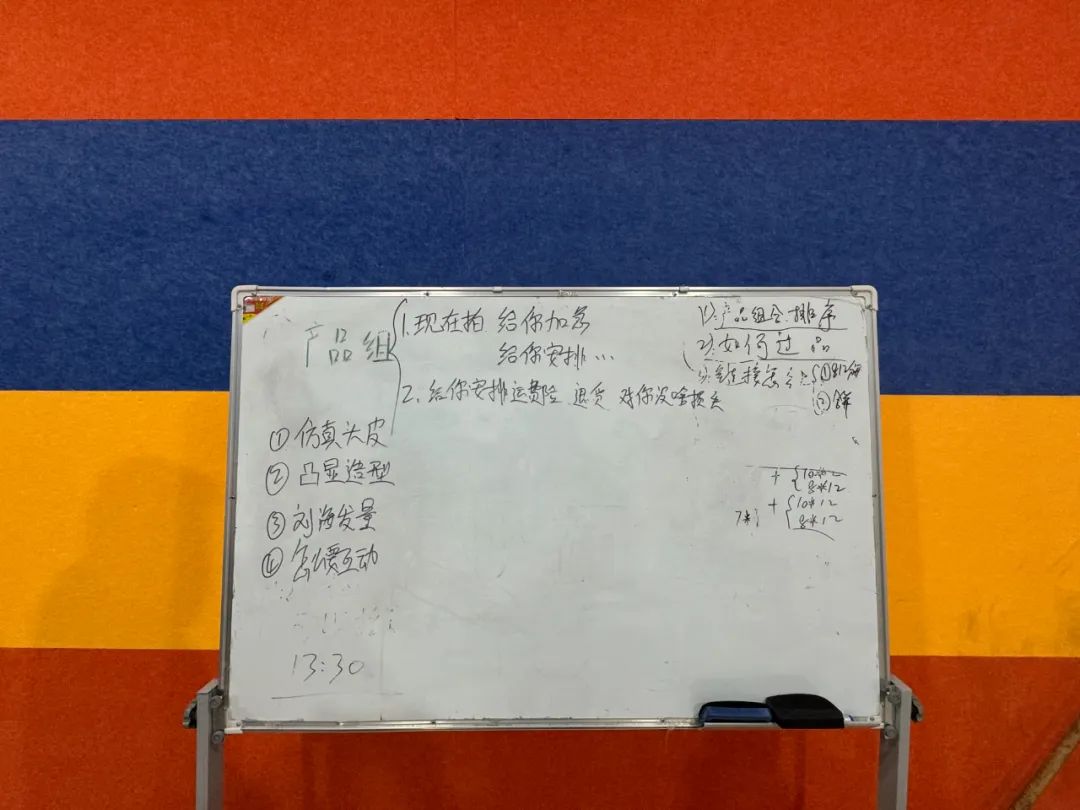 产品组
1.现在拍 给你加急
给你安排...
2.给你安排运费险 退货 对你没啥损失
① 仿真头皮
② 凸显造型
③ 刘海发量
④ 怎么要互动
13:30
1).产品组合.排序
2).如何过品
3).链接怎么
①
②
+ { 10*12
8*12
+ { 10*12
8*12
7*